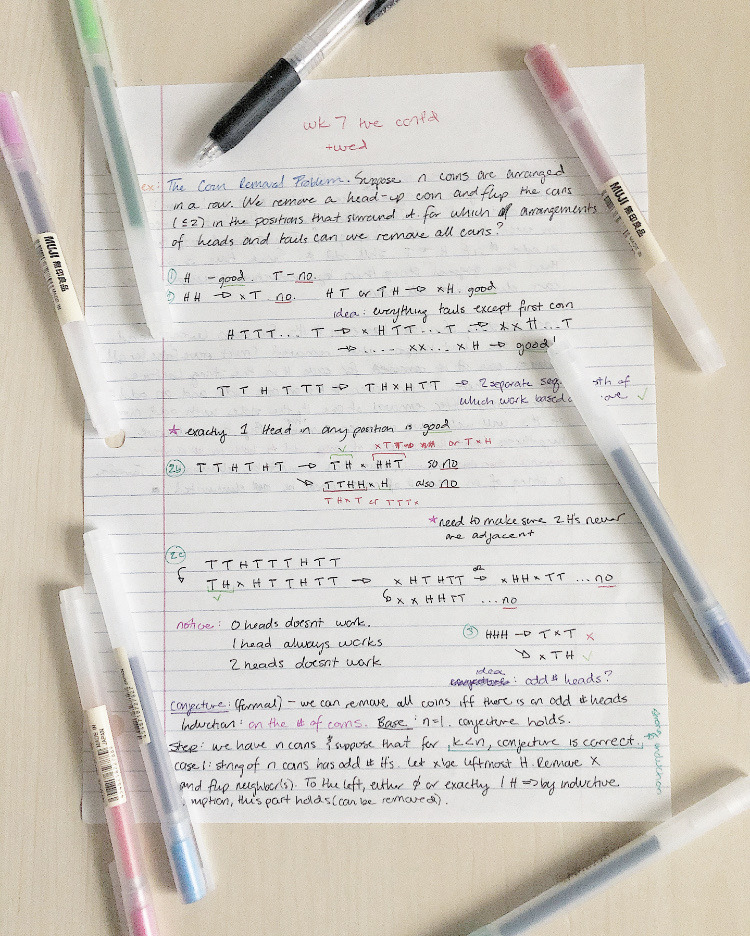 wk 7 tue cont'd
+wed
ex: The Coin Removal Problem. Suppose n coins are arranged
in a row. We remove a head-up coin and flip the coins
(≤2) in the positions that surround it. for which arrangements
of heads and tails can we remove all coins?
① H - good. T - no.
② HH → xT no. HT or TH → xH. good
idea: everything tails except first coin
HTTT... T → x HTT...T → xxH...T
→ ..... xx... xH → good!
T T H T T T → T H x H T T → 2 separate seq. of
which work based
✓
* exactly 1 Head in any position is good
✓ or TxH
②b T T H T H T → T H x H H T so no
↘ T T H H x H also no
T H x T or T T T x
* need to make sure 2 H's never
are adjacent
②c T T H T T T H T T
T H x H T T H T T → x H T H T T → or x H H x T T ... no
✓ ↳ x x H H T T ... no
notice: 0 heads doesnt work.
1 head always works
2 heads doesnt work
③ HHH → T x T x
↘ x T H ✓
idea: odd # heads?
conjecture: (formal) - we can remove all coins iff there is an odd # heads
Induction: on the # of coins. Base: n=1, conjecture holds.
Step: we have n coins & suppose that for k<n, conjecture is correct.
strong induction
case 1: string of n coins has odd # H's. Let x be leftmost H. Remove X
and flip neighbor(s). To the left, either ∅ or exactly 1 H ⇒ by inductive
mption, this part holds (can be removed).
MUJI 無印良品
MUJI 無印良品
MADE IN JAPAN
MADE IN JAPAN